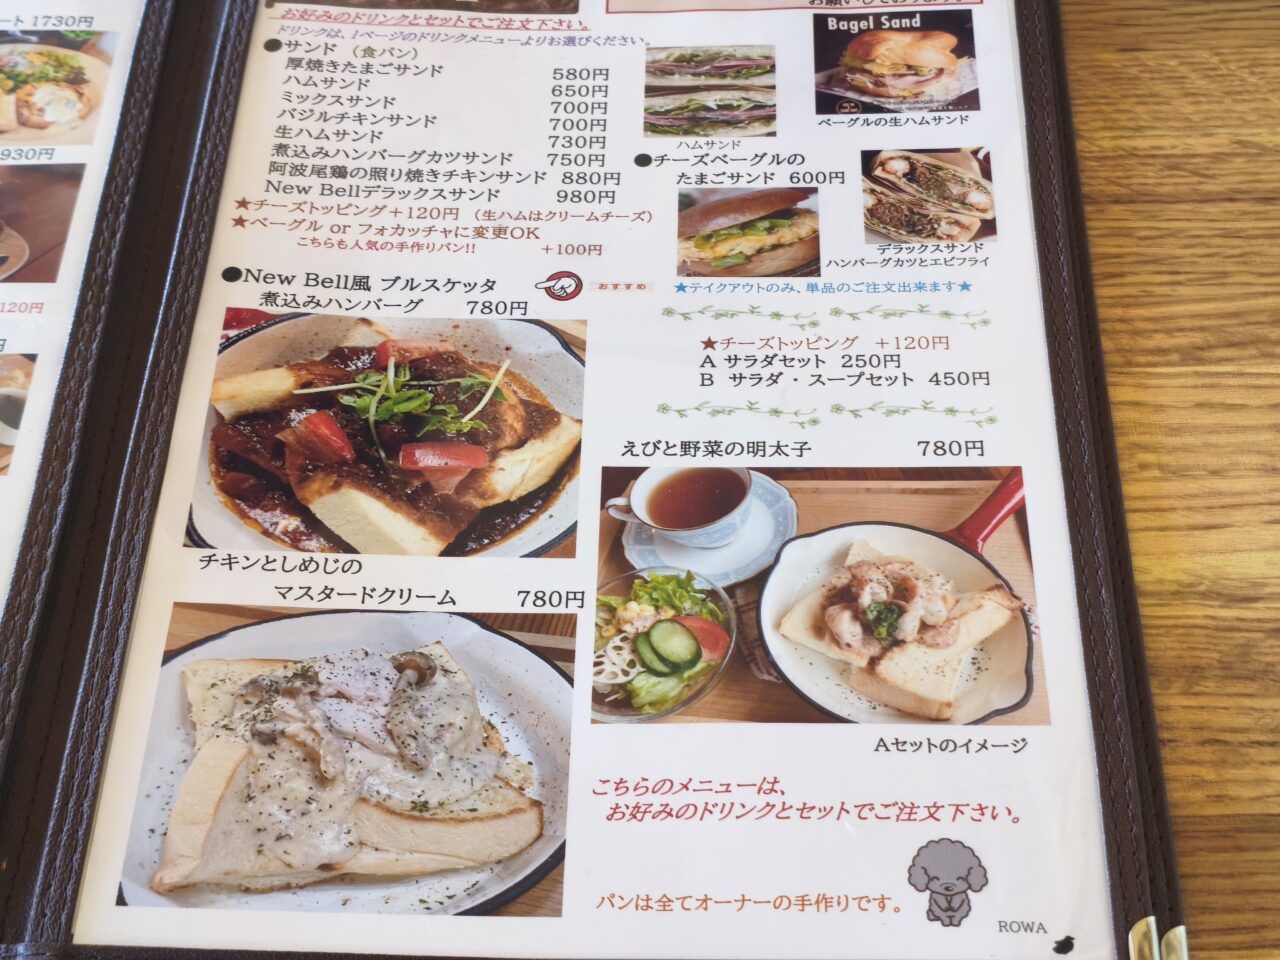 ート 1730円
930円
120円
円
お願いしております。
お好みのドリンクとセットでご注文下さい。
ドリンクは、1ページのドリンクメニューよりお選びください。
●サンド（食パン）
厚焼きたまごサンド 580円
ハムサンド 650円
ミックスサンド 700円
バジルチキンサンド 700円
生ハムサンド 730円
煮込みハンバーグカツサンド 750円
阿波尾鶏の照り焼きチキンサンド 880円
New Bellデラックスサンド 980円
★チーズトッピング＋120円 （生ハムはクリームチーズ）
★ベーグル or フォカッチャに変更OK
こちらも人気の手作りパン!! ＋100円
Bagel Sand
ベーグルの生ハムサンド
ハムサンド
●チーズベーグルの
たまごサンド 600円
デラックスサンド
ハンバーグカツとエビフライ
★テイクアウトのみ、単品のご注文出来ます★
●New Bell風 ブルスケッタ
おすすめ
煮込みハンバーグ 780円
★チーズトッピング ＋120円
A サラダセット 250円
B サラダ・スープセット 450円
えびと野菜の明太子 780円
チキンとしめじの
マスタードクリーム 780円
Aセットのイメージ
こちらのメニューは、
お好みのドリンクとセットでご注文下さい。
パンは全てオーナーの手作りです。
ROWA